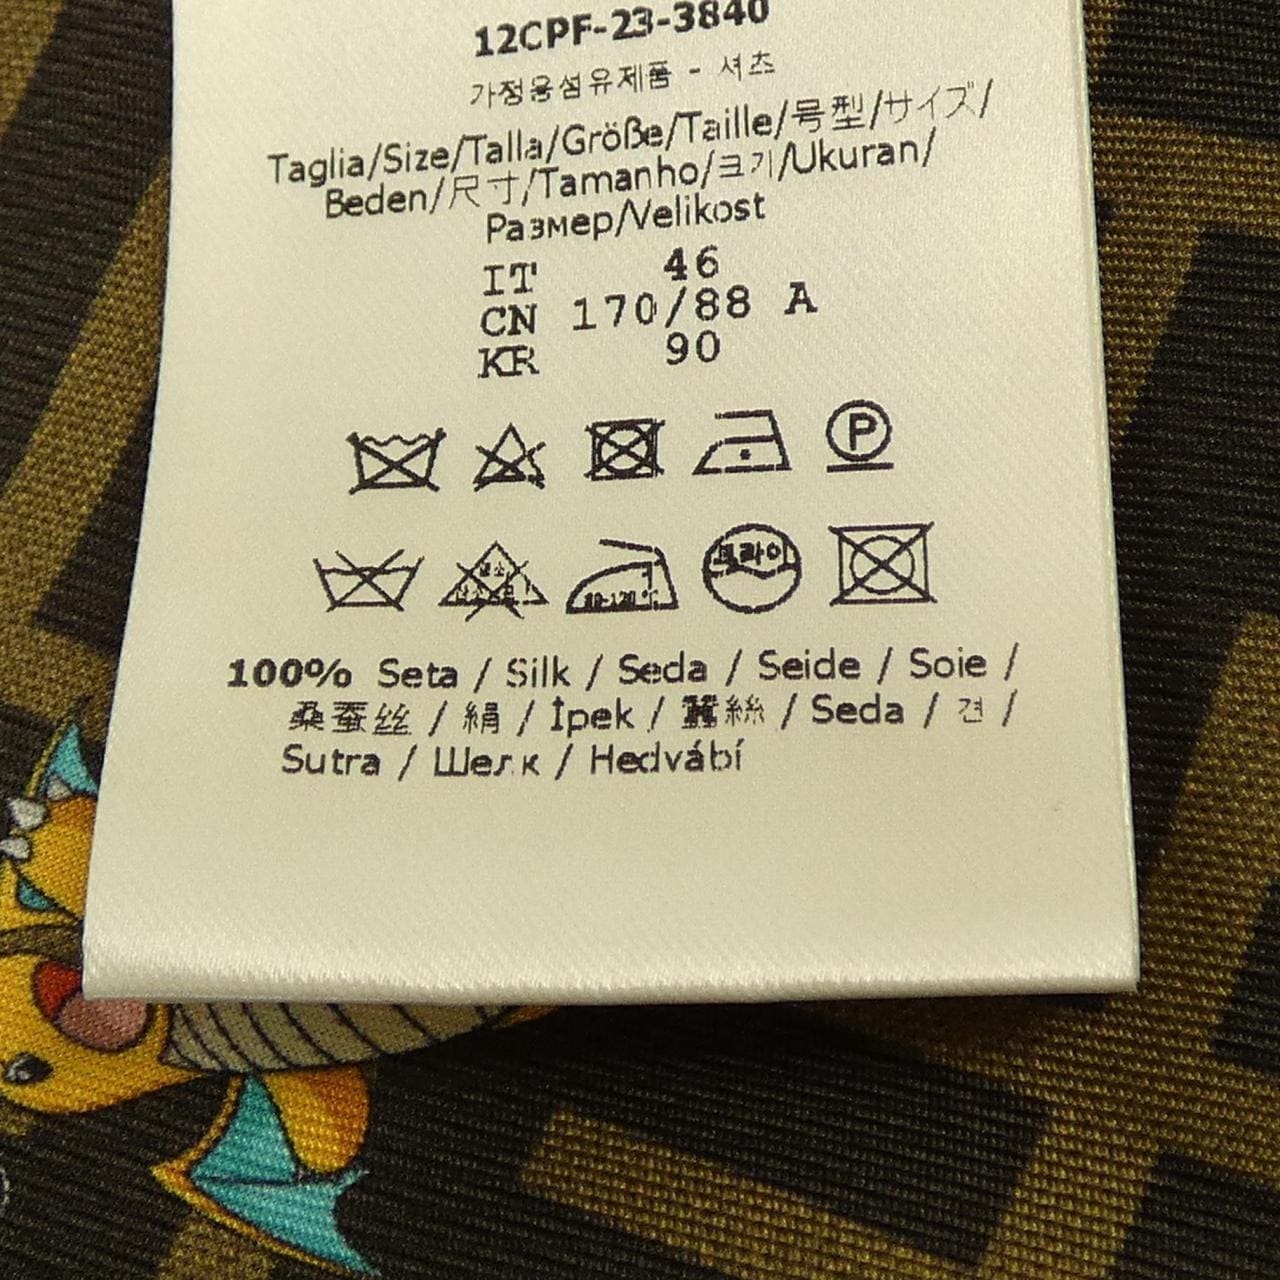 12CPF-23-3840
가정용섬유제품 - 셔츠
Taglia/Size/Talla/Größe/Taille/号型/サイズ/
Beden/尺寸/Tamanho/크기/Ukuran/
Размер/Velikost
IT 46
CN 170/88 A
KR 90
P
드라이
80-120℃
100% Seta / Silk / Seda / Seide / Soie /
桑蚕丝 / 絹 / İpek / 蠶絲 / Seda / 견 /
Sutra / Шелк / Hedvábí